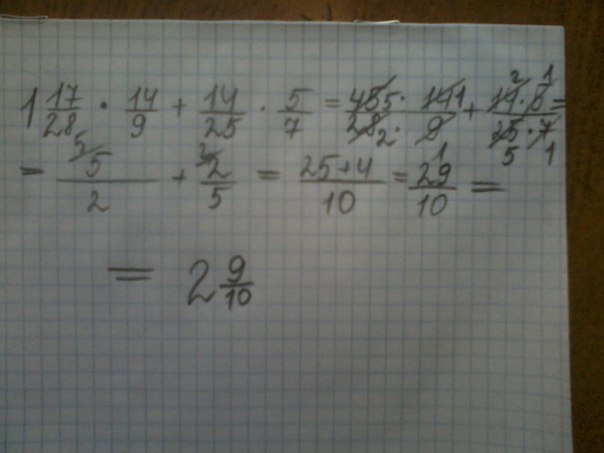 1 17/28 · 14/9 + 14/25 · 5/7 = 45 5 · 14 1 / 28 2 · 9 1 + 14 2 · 5 1 / 25 5 · 7 1 =
= 5 5/2 + 2 2/5 = 25+4/10 = 29/10 =
= 2 9/10